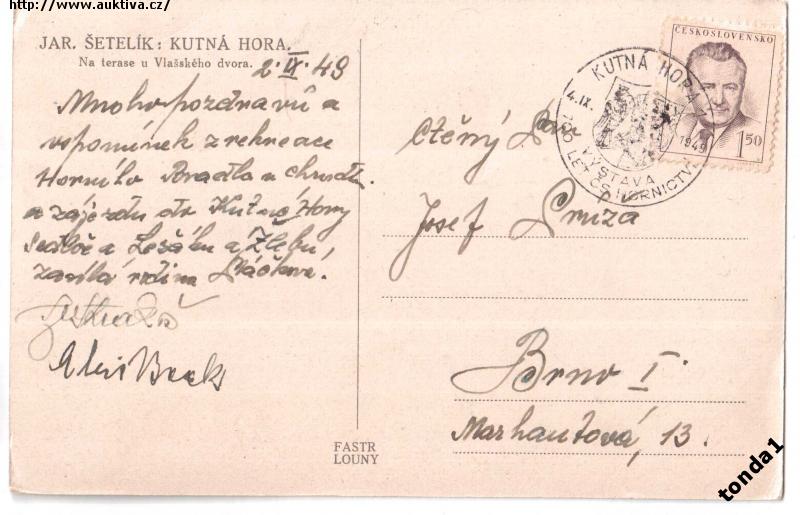 http://www.auktiva.cz/
JAR. ŠETELÍK: KUTNÁ HORA.
Na terase u Vlašského dvora.
2. IX. 49
Mnoho pozdravů a
vspomínek z rekreace
Horního Bradla u Chrudi.
a zájezdu do Kutné Hory
Sedlce a Žlebů,
zasílá rodina
ČESKOSLOVENSKO
1.50
KUTNÁ HORA 1
4.IX. 1949
VÝSTAVA
700 LET ČS. HORNICTVÍ
Ctěný Pan
Josef Pruza
Brno I.
Marhantová, 13.
FASTR
LOUNY
tonda1